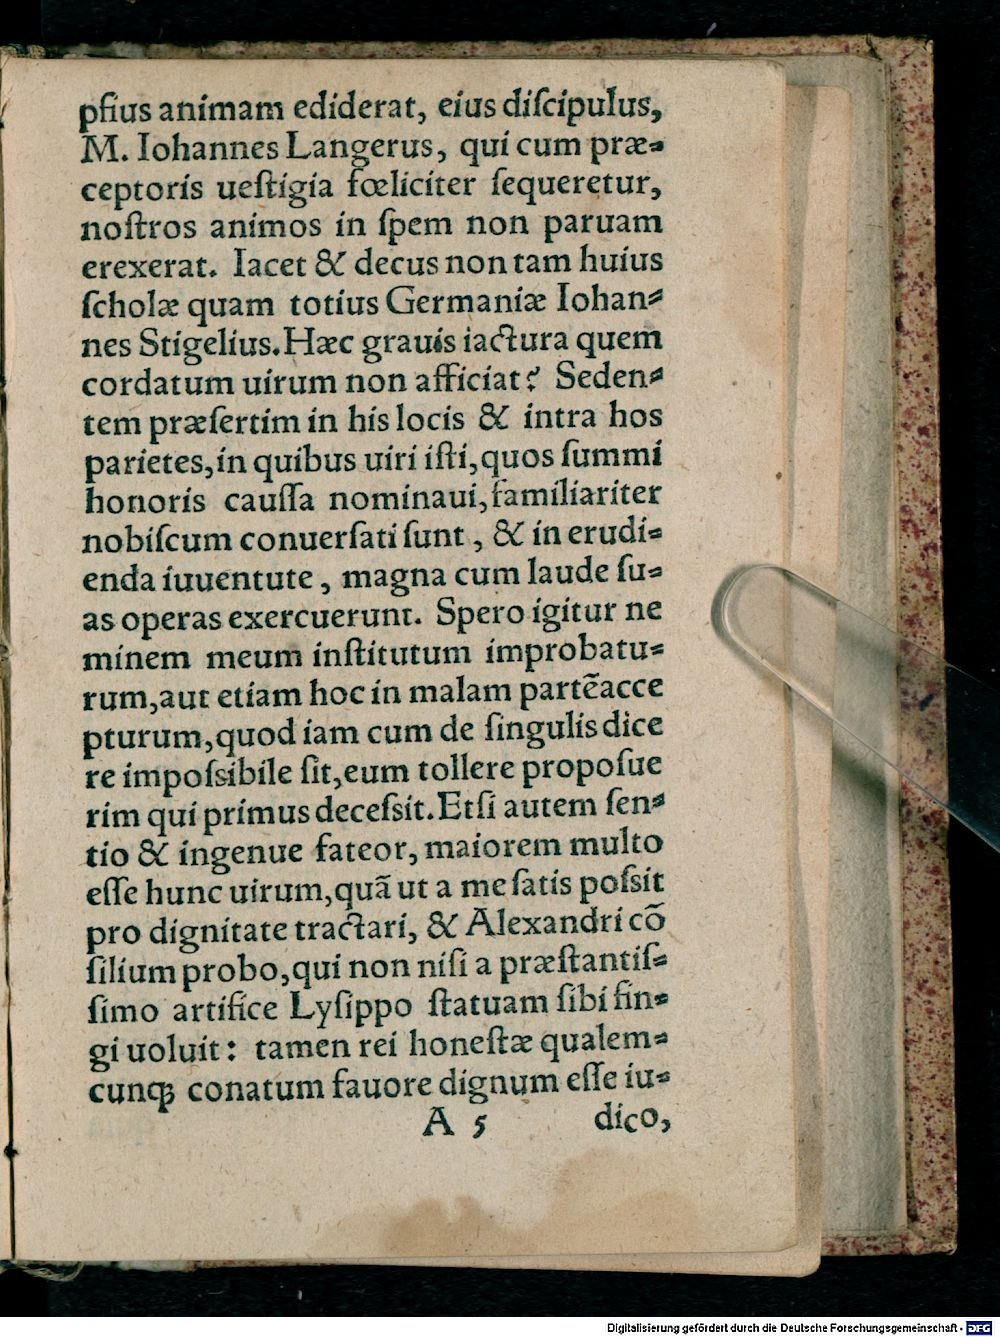 pſius animam ediderat, eius diſcipulus,
M. Iohannes Langerus, qui cum præ-
ceptoris ueſtigia fœliciter ſequeretur,
noſtros animos in ſpem non paruam
erexerat. Iacet & decus non tam huius
ſcholæ quam totius Germaniæ Iohan-
nes Stigelius. Hæc grauis iactura quem
cordatum uirum non afficiat? Seden-
tem præſertim in his locis & intra hos
parietes, in quibus uiri iſti, quos ſummi
honoris cauſſa nominaui, familiariter
nobiſcum conuerſati ſunt, & in erudi-
enda iuuentute, magna cum laude ſu-
as operas exercuerunt. Spero igitur ne
minem meum inſtitutum improbatu-
rum, aut etiam hoc in malam partẽ acce
pturum, quod iam cum de ſingulis dice
re impoſsibile ſit, eum tollere propoſue
rim qui primus deceſsit. Etſi autem ſen-
tio & ingenue fateor, maiorem multo
eſſe hunc uirum, quã ut a me ſatis poſsit
pro dignitate tractari, & Alexandri cõ
ſilium probo, qui non niſi a præſtantiſ-
ſimo artifice Lyſippo ſtatuam ſibi fin-
gi uoluit: tamen rei honeſtæ qualem-
cunqꝫ conatum fauore dignum eſſe iu-
A 5 dico,
Digitalisierung gefördert durch die Deutsche Forschungsgemeinschaft - DFG